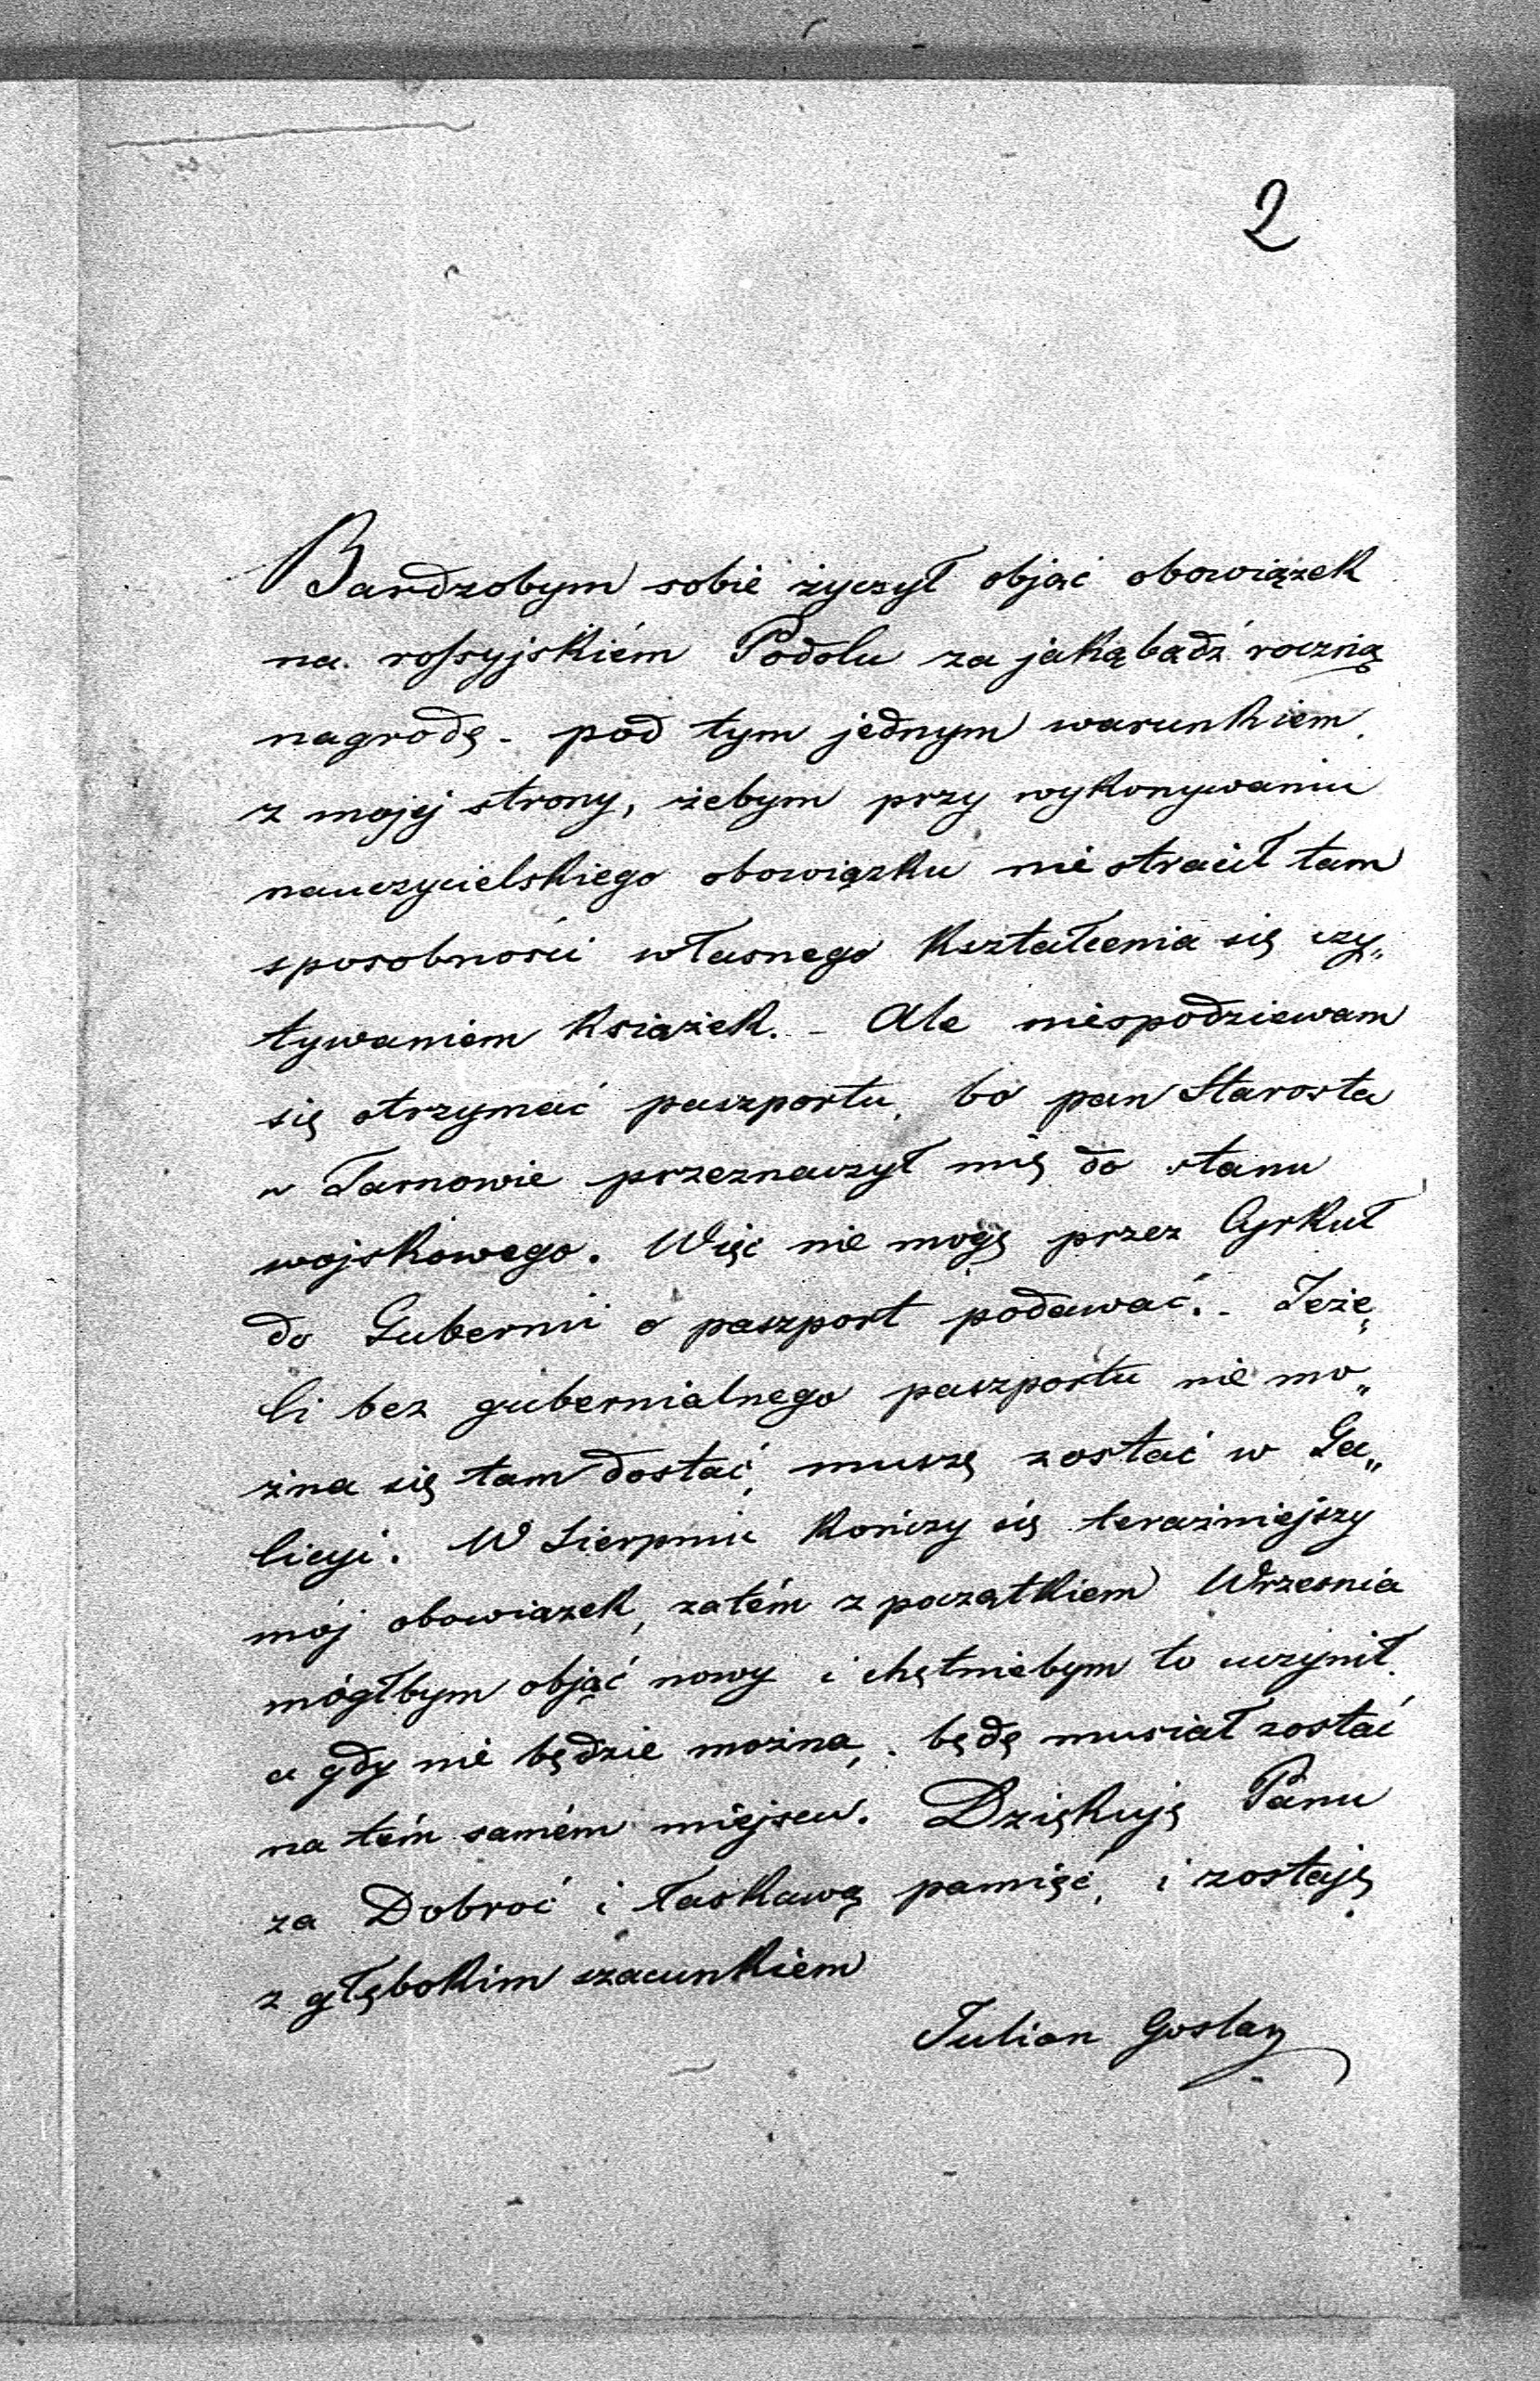 2
Bardzobym sobie życzył objąć obowiązek
na rossyjskiém Podolu za jakąbądź roczną
nagrodę - pod tym jednym warunkiem
z mojej strony, żebym przy wykonywaniu
nauczycielskiego obowiązku nie stracił tam
sposobności własnego kształcenia się czy„
tywaniem książek. - Ale niespodziewam
się otrzymać paszportu, bo pan Starosta
w Tarnowie przeznaczył mię do stanu
wojskowego. Więc nie mogę przez Cyrkuł
do Gubernii o paszport podawać. - Jeże„
li bez gubernialnego paszportu nie mo„
żna się tam dostać, muszę zostać w Ga„
licyi. W Sierpniu kończy się teraźniejszy
mój obowiązek, zatém z początkiem Września
mógłbym objąć nowy i chętniebym to uczynił.
a gdy nie będzie można, będę musiał zostać
na tém samém miejscu. Dziękuję Panu
za Dobroć i łaskawą pamięć, i zostaję
z głębokim szacunkiem
Julian Goslar